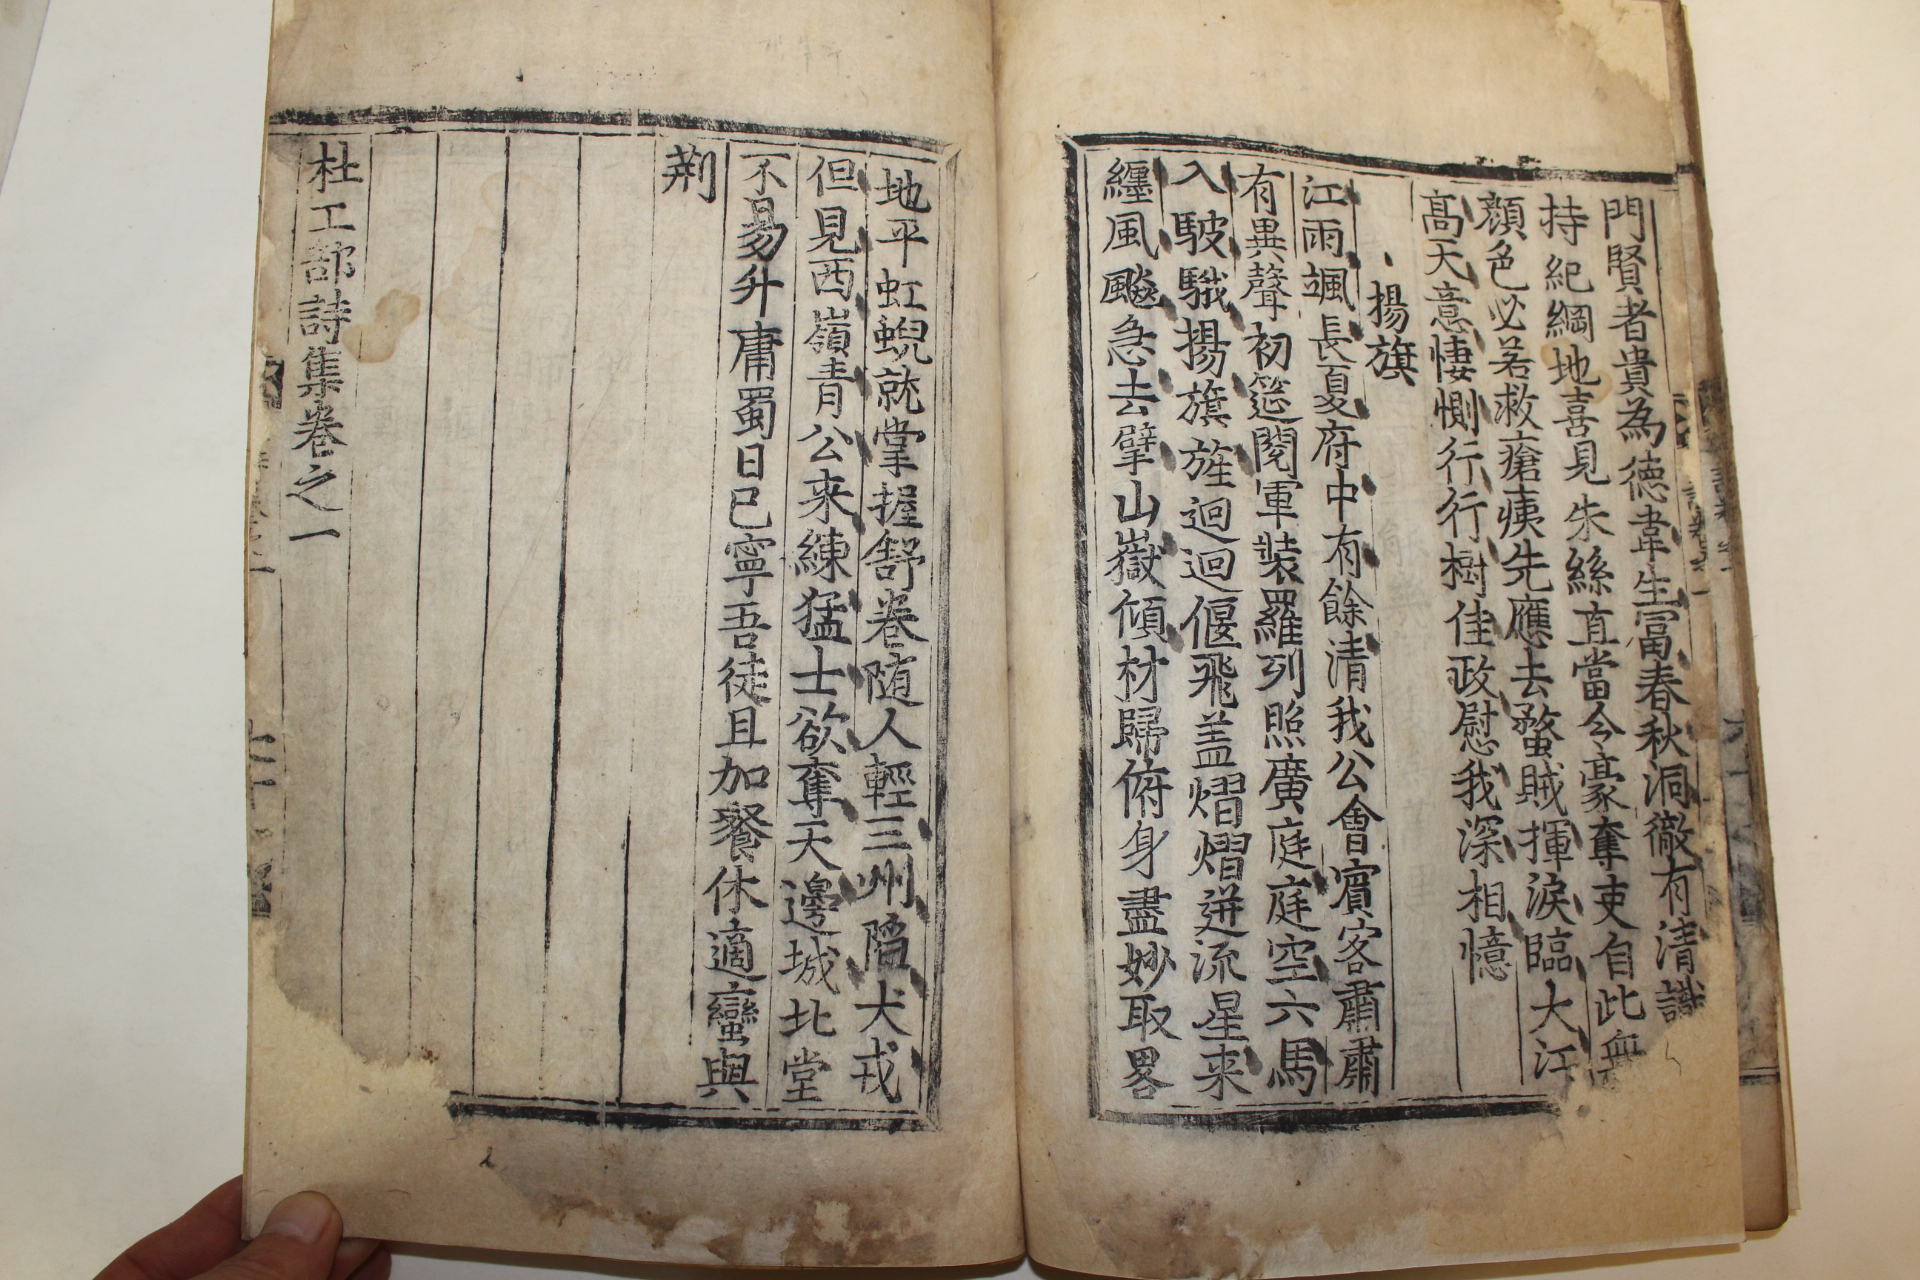 門賢者貴為德韋生富春秋洞徹有清識
持紀綱地喜見朱絲直當令豪奪吏自此無
顏色必若救瘡痍先應去蝥賊揮淚臨大江
高天意悽惻行行樹佳政慰我深相憶
揚旗
江雨颯長夏府中有餘清我公會賓客肅肅
有異聲初筵閱軍裝羅列照廣庭庭空六馬
入駊騀揚旗旌迴迴偃飛盖熠熠迸流星来
纏風飈急去擘山嶽傾材歸俯身盡妙取畧
地平虹蜺就掌握舒卷随人輕三州陷犬戎
但見西嶺青公来練猛士欲奪天邊城北堂
不易升庸蜀日已寧吾徒且加餐休適蠻與
荆
杜工部詩集卷之一